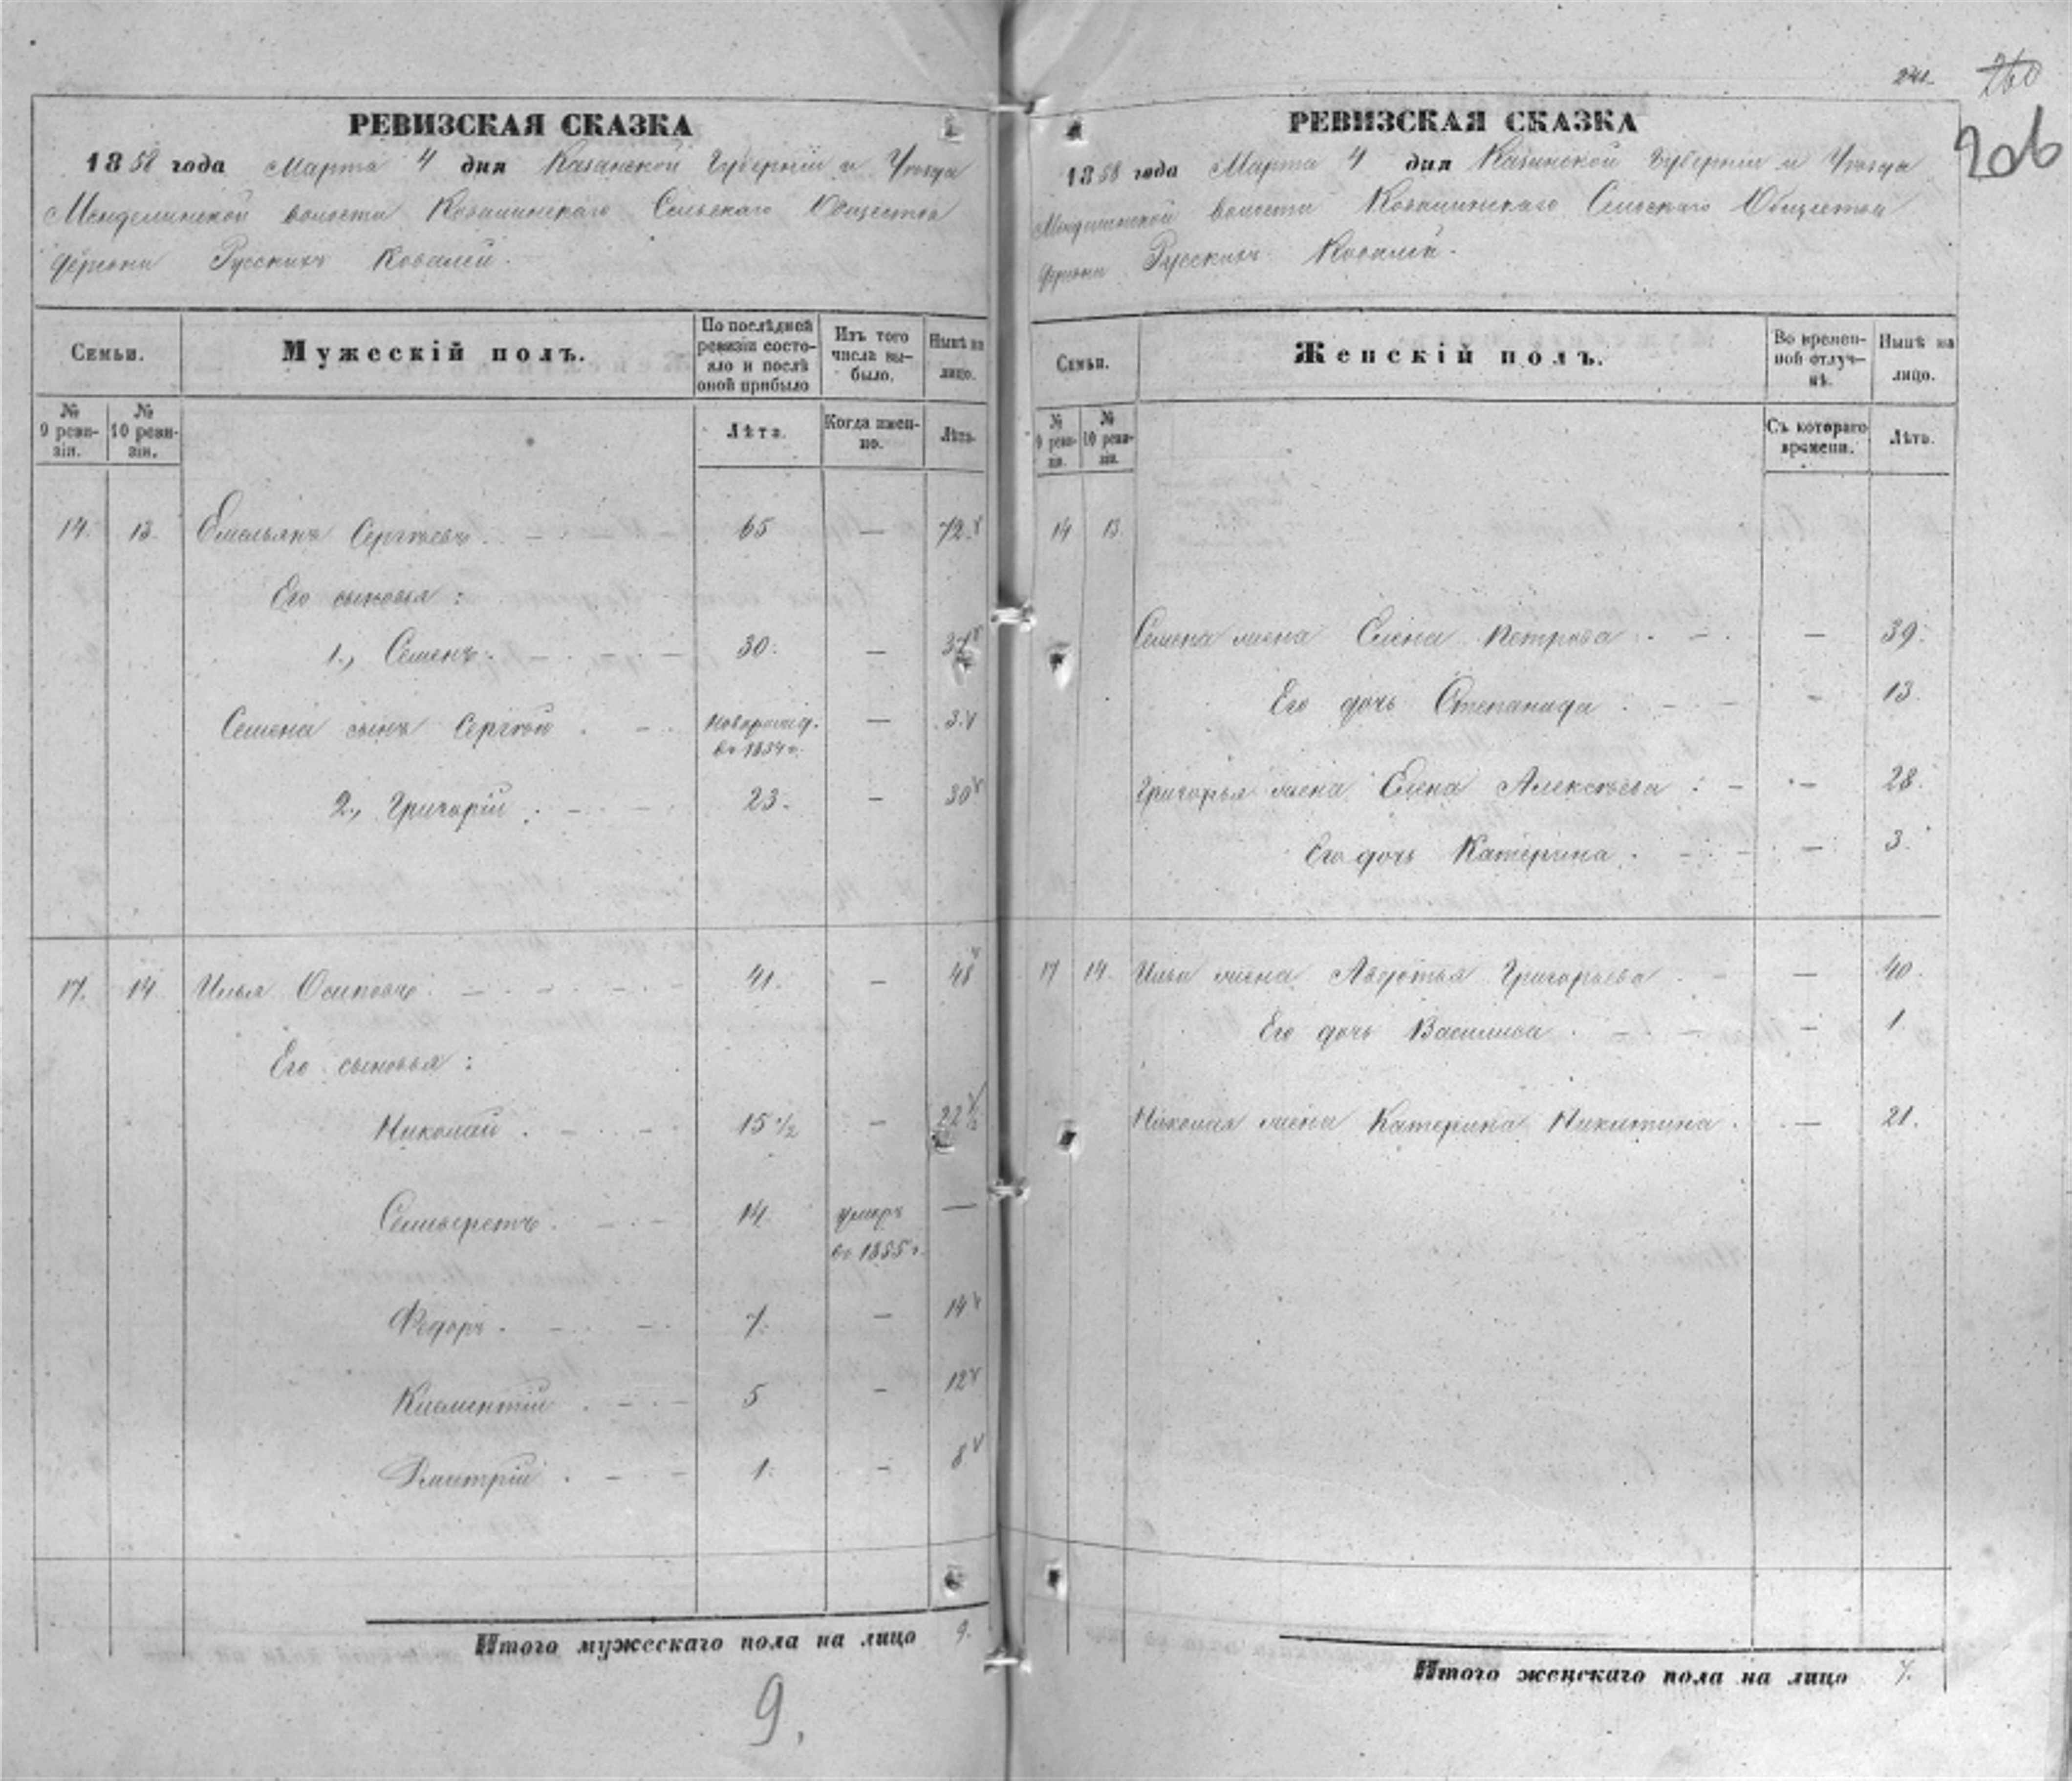 РЕВИЗСКАЯ СКАЗКА
1858 года Марта 4 дня Казанской Губернiи и Уѣзда
Менделинской волости Ковалинскаго Сельскаго Общества
деревни Русскихъ Ковалей.
Семьи.
Мужескiй полъ.
По послѣдней ревизiи состояло и послѣ оной прибыло
Изъ того числа выбыло.
Нынѣ на лицо.
№ 9 ревизiи.
№ 10 ревизiи.
Лѣта.
Когда именно.
Лѣта.
14. 13. Емельянъ Сергѣевъ. 65 — 72.
Его сыновья:
1., Семенъ. 30. — 37
Семена сынъ Сергѣй новорожд. въ 1854 г. — 3.
2., Григорiй. 23. — 30
17. 14 Илья Осиповъ. 41. — 48
Его сыновья:
Николай. 15 1/2 — 22 1/2
Селиверстъ. 14. умеръ въ 1855 г. —
Федоръ. 7. — 14
Климентiй. 5 — 12
Дмитрiй. 1. — 8
Итого мужескаго пола на лицо 9.
9.
241.
260
206
РЕВИЗСКАЯ СКАЗКА
1858 года Марта 4 дня Казанской Губернiи и Уѣзда
Менделинской волости Ковалинскаго Сельскаго Общества
деревни Русскихъ Ковалей.
Семьи.
Женскiй полъ.
Во временной отлучкѣ.
Нынѣ на лицо.
№ 9 ревизiи.
№ 10 ревизiи.
Съ котораго времени.
Лѣта.
14 13.
Семена жена Елена Петрова. — 39.
Его дочь Степанида. — 13.
Григорья жена Елена Алексѣева: — 28.
Его дочь Катерина. — 3.
17 14. Ильи жена Авдотья Григорьева. — 40.
Его дочь Василиса. — 1
Николая жена Катерина Никитина. — 21.
Итого женскаго пола на лицо 7.